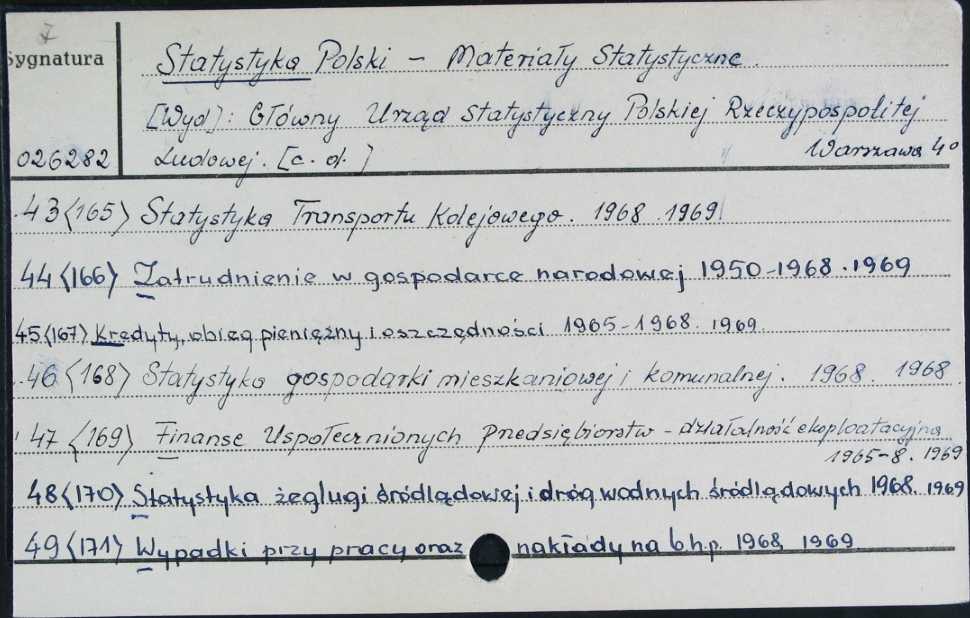 7
Sygnatura
Statystyka Polski – Materiały Statystyczne.
[Wyd]: Główny Urząd Statystyczny Polskiej Rzeczypospolitej
026282 Ludowej. [c. d.] Warszawa 4°
43<165> Statystyka Transportu Kolejowego. 1968. 1969
44<166> Zatrudnienie w gospodarce narodowej 1950-1968. 1969
45<167> Kredyty, obieg pieniężny i oszczędności 1965-1968. 1969.
46<168> Statystyka gospodarki mieszkaniowej i komunalnej. 1968. 1968.
47<169> Finanse Uspołecznionych Przedsiębiorstw – działalność eksploatacyjna
1965-8. 1969
48<170> Statystyka żeglugi śródlądowej i dróg wodnych śródlądowych 1968. 1969
49<171> Wypadki przy pracy oraz nakłady na b.h.p. 1968, 1969